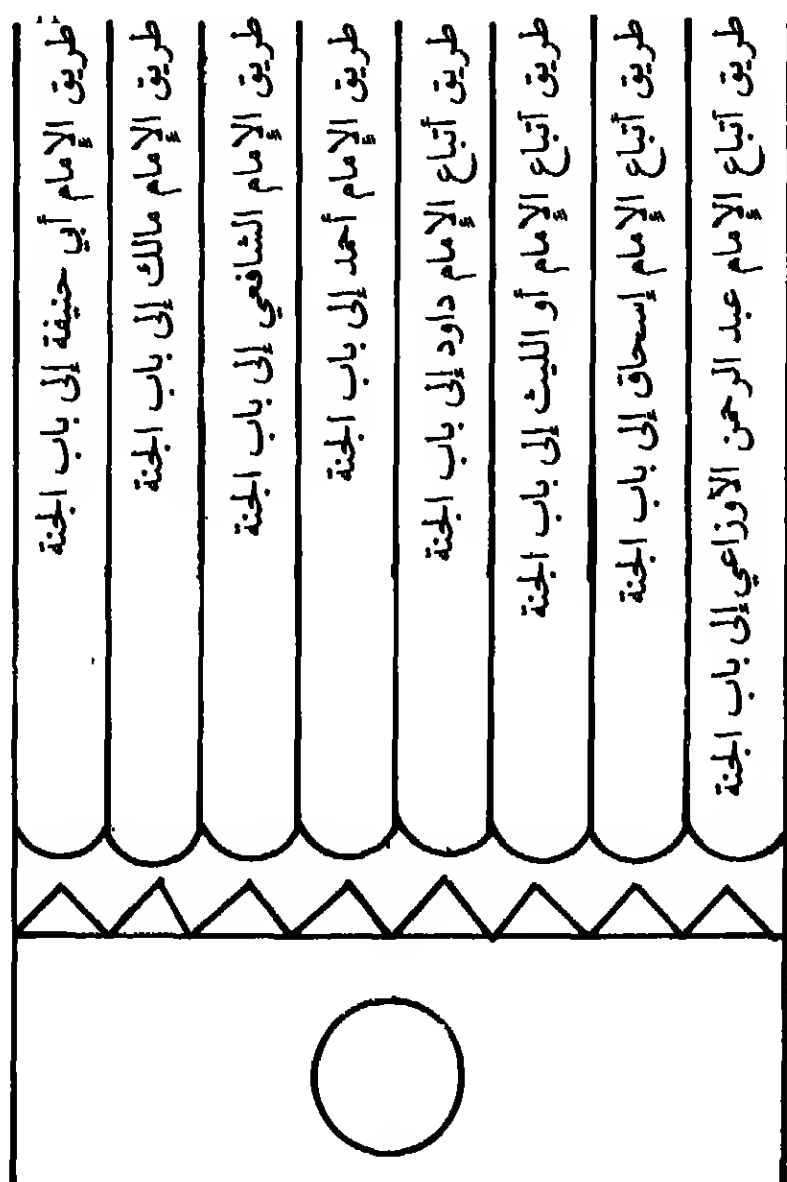 طريق الإمام أبي حنيفة إلى باب الجنة
طريق الإمام مالك إلى باب الجنة
طريق الإمام الشافعي إلى باب الجنة
طريق الإمام أحمد إلى باب الجنة
طريق أتباع الإمام داود إلى باب الجنة
طريق أتباع الإمام أو الليث إلى باب الجنة
طريق أتباع الإمام إسحاق إلى باب الجنة
طريق أتباع الإمام عبد الرحمن الأوزاعي إلى باب الجنة